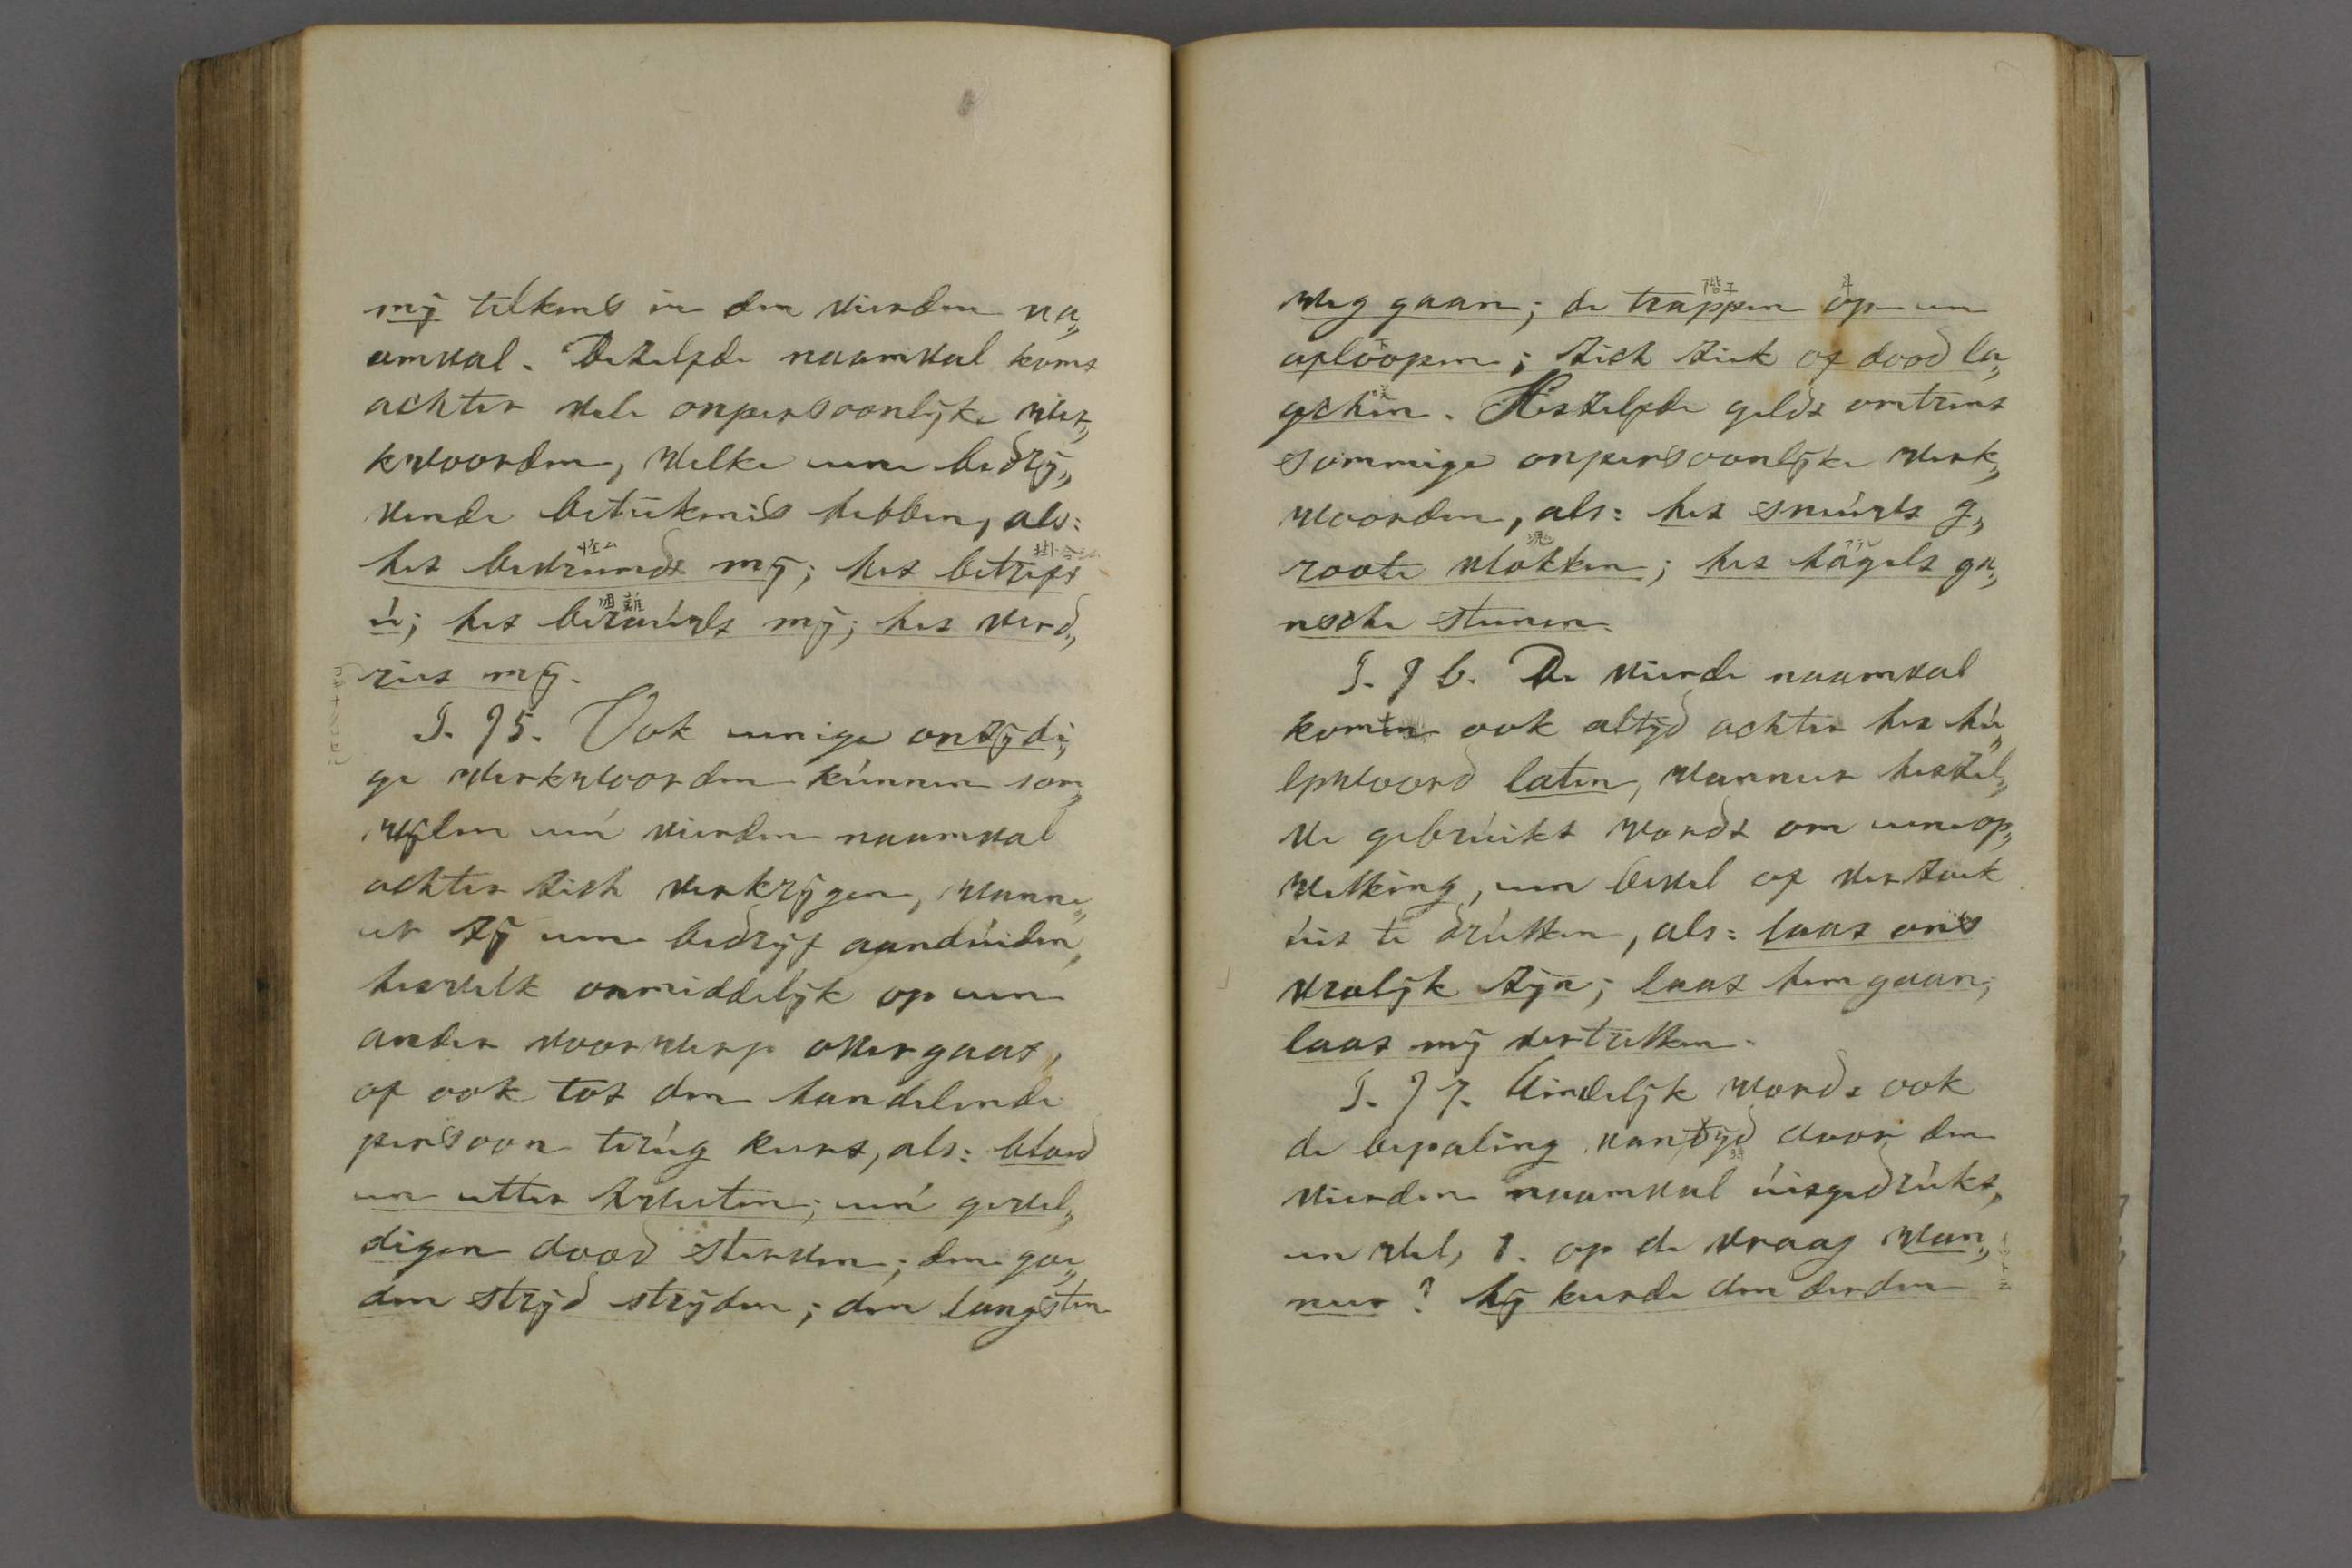 mij telkens in den vierden na„
amval. Dezelfde naamval komt
achter vele onpersoonlijke wer„
kwoorden, welke eene bedrij„
vende beteekenis hebben, als:
het bevreemdt mij; het betreft
ú; het berouwt mij; het verd„
riet mij.
§. 95. Ook eenige onzijdi„
ge werkwoorden kúnnen som„
wijlen een' vierden naamval
achter zich verkrijgen, wanne„
er zij een bedrijf aandúiden,
hetwelk onmiddelijk op een
ander voorwerp overgaat,
of ook tot den handelende
persoon terúg keert, als: bloed
en etter zweeten; een' gewel„
digen dood sterven; den goe„
den strijd strijden; den langsten
weg gaan; de trappen op en
afloopen; zich ziek of dood la„
gchen. Hetzelfde geldt omtrent
sommige onpersoonlijke werk„
woorden, als: het sneeúwt g„
roote vlokken; het hagelt ga„
nsche steenen.
§. 96. De vierde naamval
komt ook altijd achter het hú„
lpwoord laten, wanneer hetzel„
ve gebrúikt wordt om eene op„
wekking, een bevel of verzoek
úit te drúkken, als: laat ons
vrolijk zijn; laat hem gaan;
laat mij vertrekken.
§. 97. Eindelijk wordt ook
de bepaling van tijd door den
vierden naamval úitgedrúkt,
en wel, 1. op de vraag wan„
neer? hij keerde den derden